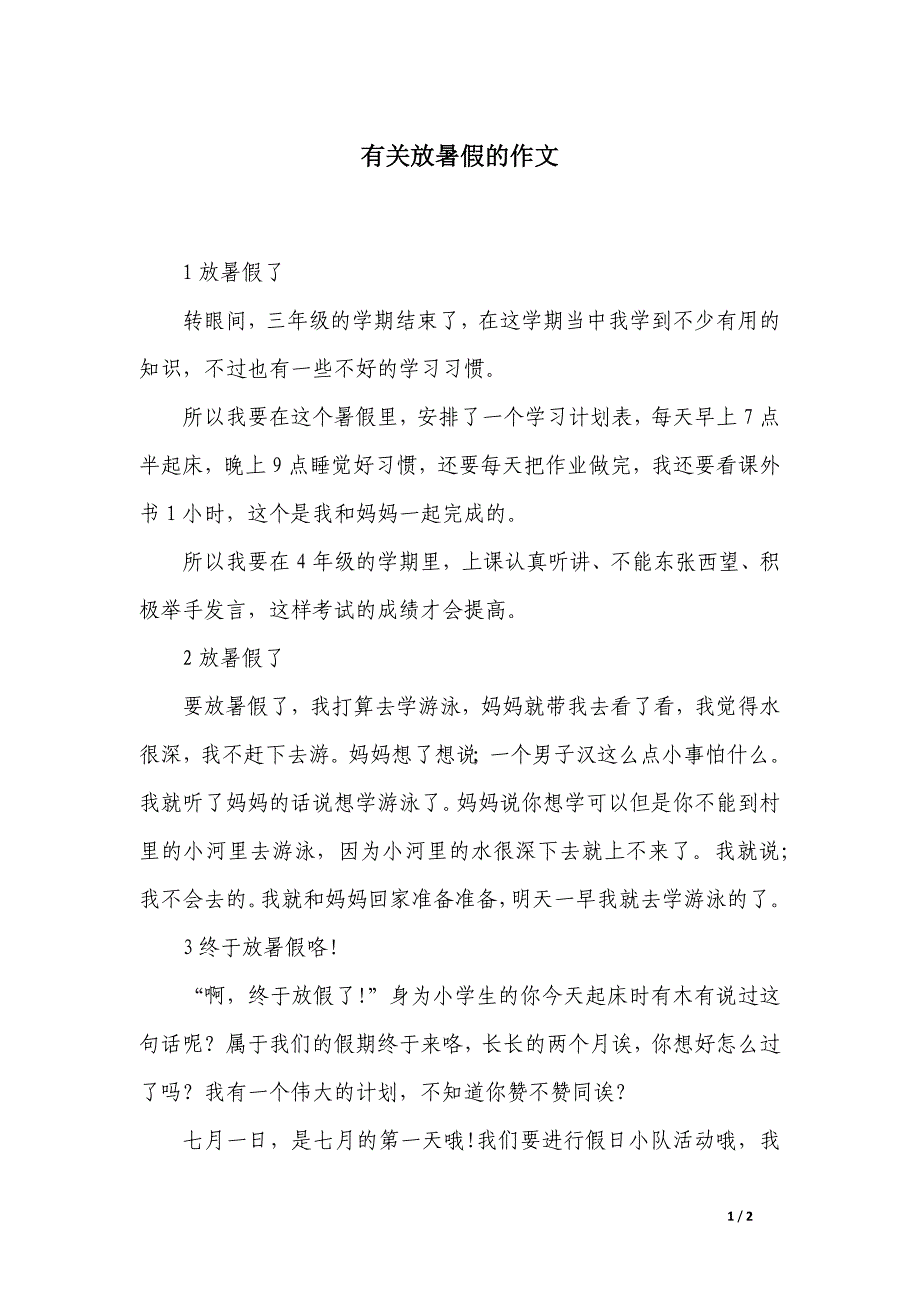 有关放暑假的作文
1 放暑假了
转眼间，三年级的学期结束了，在这学期当中我学到不少有用的
知识，不过也有一些不好的学习习惯。
所以我要在这个暑假里，安排了一个学习计划表，每天早上 7 点
半起床，晚上 9 点睡觉好习惯，还要每天把作业做完，我还要看课外
书 1 小时，这个是我和妈妈一起完成的。
所以我要在 4 年级的学期里，上课认真听讲、不能东张西望、积
极举手发言，这样考试的成绩才会提高。
2 放暑假了
要放暑假了，我打算去学游泳，妈妈就带我去看了看，我觉得水
很深，我不赶下去游。妈妈想了想说；一个男子汉这么点小事怕什么。
我就听了妈妈的话说想学游泳了。妈妈说你想学可以但是你不能到村
里的小河里去游泳，因为小河里的水很深下去就上不来了。我就说；
我不会去的。我就和妈妈回家准备准备，明天一早我就去学游泳的了。
3 终于放暑假咯！
“啊，终于放假了！”身为小学生的你今天起床时有木有说过这
句话呢？属于我们的假期终于来咯，长长的两个月诶，你想好怎么过
了吗？我有一个伟大的计划，不知道你赞不赞同诶？
七月一日，是七月的第一天哦！我们要进行假日小队活动哦，我
1 / 2